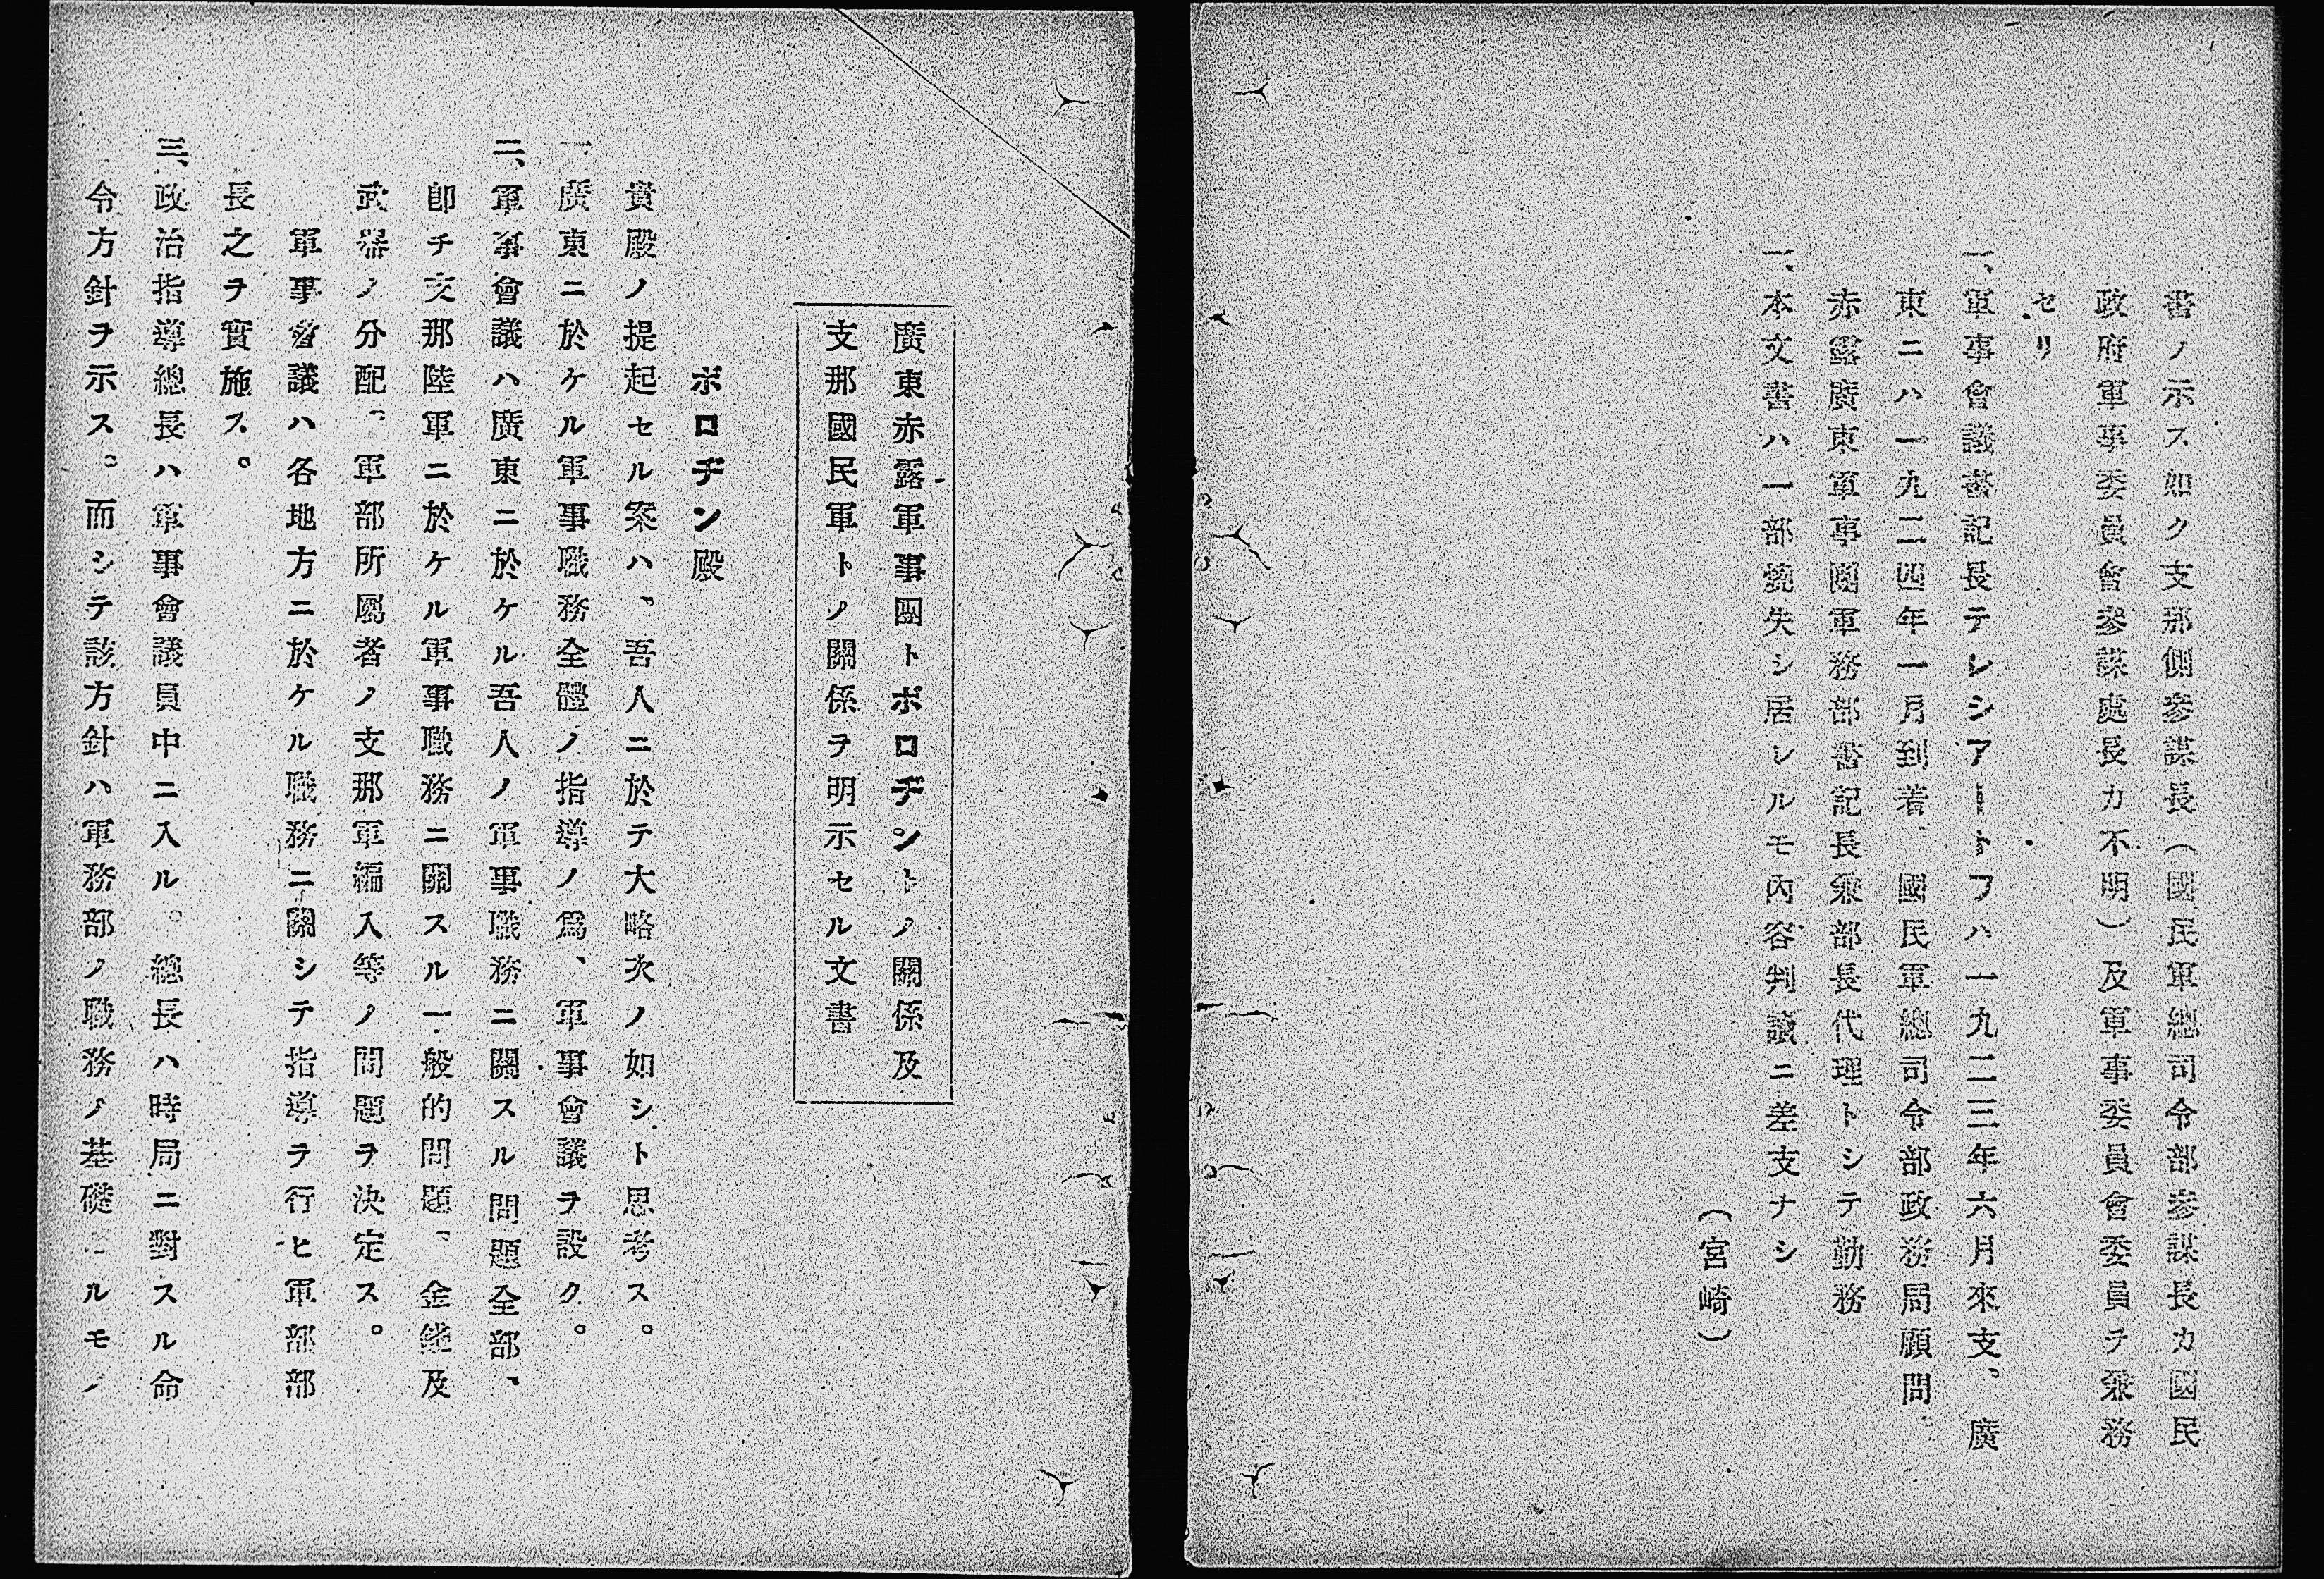 書ノ示ス如ク支那側參謀長(國民軍總司令部參謀長カ國民
政府軍事委員會參謀處長カ不明)及軍事委員會委員ヲ兼務
セリ
一、軍事會議書記長テレシアートフハ一九二三年六月來支。廣
東ニハ一九二四年一月到着、國民軍總司令部政務局顧問、
赤露廣東軍事團軍務部書記長兼部長代理トシテ勤務
一、本文書ハ一部燒失シ居レルモ內容判讀ニ差支ナシ
(宮崎)
廣東赤露軍事團トボロヂントノ關係及
支那國民軍トノ關係ヲ明示セル文書
ボロヂン殿
貴殿ノ提起セル案ハ、吾人ニ於テ大略次ノ如シト思考ス。
一、廣東ニ於ケル軍事職務全體ノ指導ノ爲、軍事會議ヲ設ク。
二、軍事會議ハ廣東ニ於ケル吾人ノ軍事職務ニ關スル問題全部、
卽チ支那陸軍ニ於ケル軍事職務ニ關スル一般的問題、金錢及
武器ノ分配、軍部所屬者ノ支那軍編入等ノ問題ヲ決定ス。
軍事會議ハ各地方ニ於ケル職務ニ關シテ指導ヲ行ヒ軍部部
長之ヲ實施ス。
三、政治指導總長ハ軍事會議員中ニ入ル。總長ハ時局ニ對スル命
令方針ヲ示ス。而シテ該方針ハ軍務部ノ職務ノ基礎タルモノ